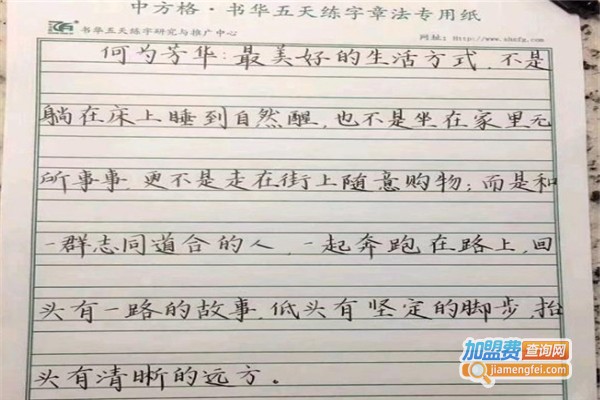 中方格·书华五天练字章法专用纸
书华五天练字研究与推广中心
网址：Http://www.shzfg.com
何为芳华：最美好的生活方式，不是
躺在床上睡到自然醒，也不是坐在家里无
所事事，更不是走在街上随意购物；而是和
一群志同道合的人，一起奔跑在路上，回
头有一路的故事，低头有坚定的脚步，抬
头有清晰的远方。
加盟费查询网
jiamengfei.com